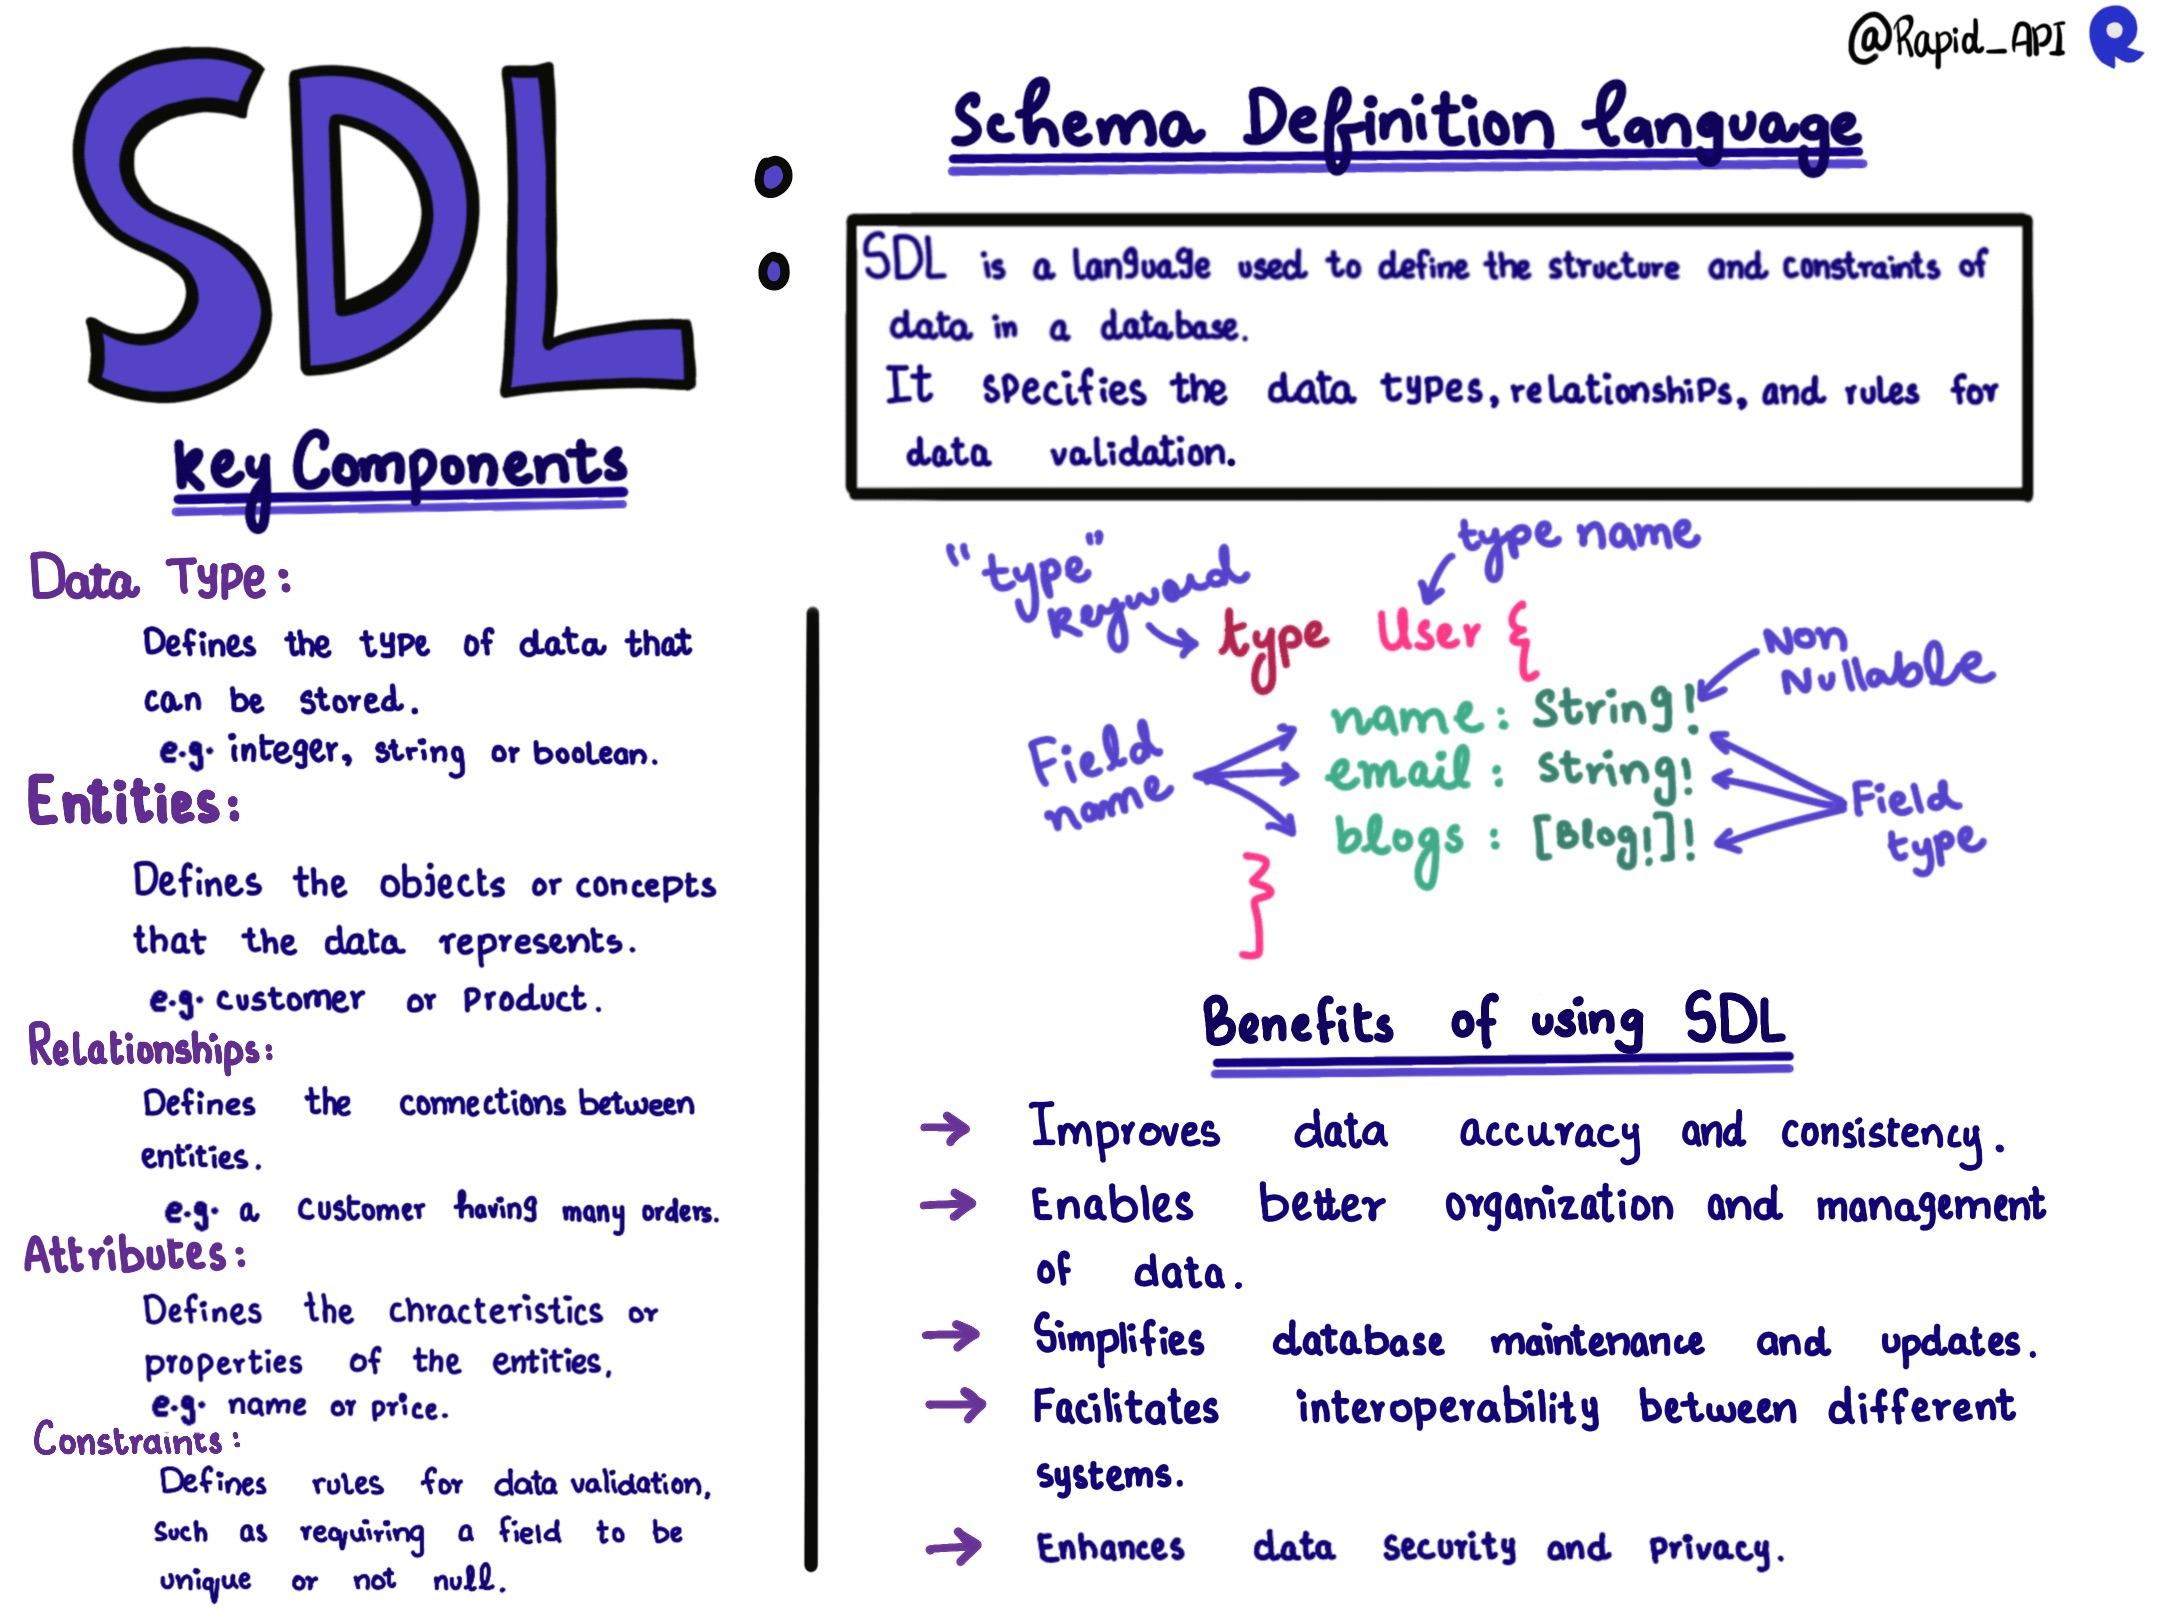 @Rapid_API
SDL :
Schema Definition language
SDL is a language used to define the structure and constraints of
data in a database.
It specifies the data types, relationships, and rules for
data validation.
key Components
Data Type:
Defines the type of data that
can be stored.
e.g. integer, string or boolean.
Entities:
Defines the objects or concepts
that the data represents.
e.g. customer or Product.
Relationships:
Defines the connections between
entities.
e.g. a customer having many orders.
Attributes:
Defines the chracteristics or
properties of the entities,
e.g. name or price.
Constraints:
Defines rules for data validation,
such as requiring a field to be
unique or not null.
"type"
keyword
type name
type User {
Non
Nullable
name: String!
email: String!
blogs: [Blog!]!
}
Field
name
Field
type
Benefits of using SDL
→ Improves data accuracy and consistency.
→ Enables better organization and management
of data.
→ Simplifies database maintenance and updates.
→ Facilitates interoperability between different
systems.
→ Enhances data security and privacy.